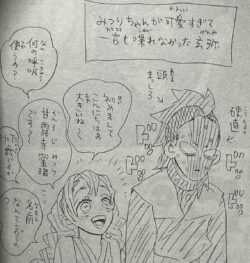 みつりちゃんが可愛すぎて
言も喋れなかった玄弥
頭まっしろ
硬直
初めまして
こんにちは
大きいね
甘露寺蜜璃
です
何の呼吸
使うの?
名前
なんていうの
ドッ
ドッ
ドッ
ドッ